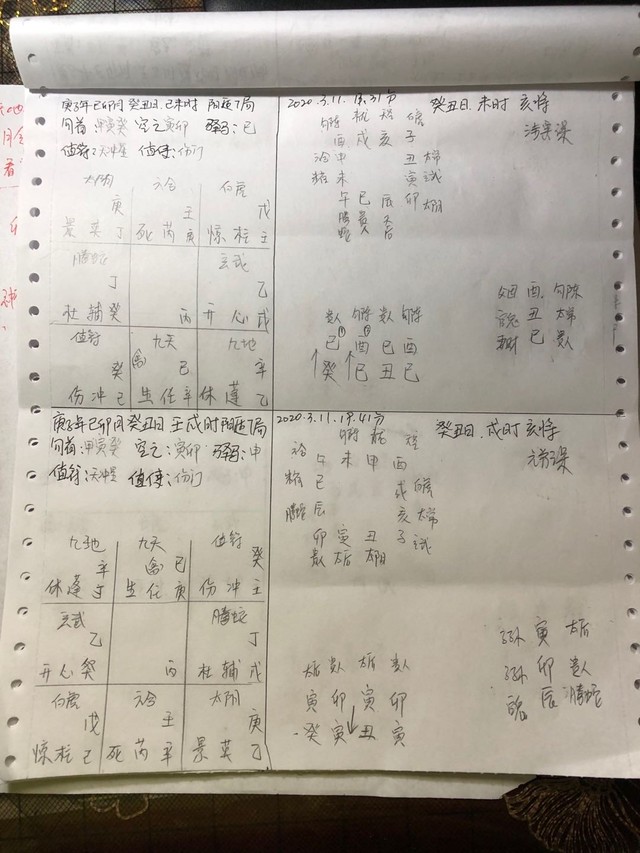 庚子年己卯月 癸丑日 己未时 阳遁7局
旬首:甲寅癸 空亡:寅卯 驿马:巳
值符:天冲星 值使:伤门
太阴 六合 白虎
庚 壬 戊
景英丁 死芮庚 惊柱壬
腾蛇 玄武
丁 乙
杜辅癸 丙 开心戊
值符 九天 九地
癸 禽己 辛
伤冲己 生任辛 休蓬乙
2020.3.11
癸丑日.未时 亥将
酉戌亥子
申 丑
未 寅
午巳辰卯
巳酉巳酉
癸巳丑巳
酉 勾陈
丑 太常
巳
庚子年己卯月 癸丑日 壬戌时 阳遁7局
旬首:甲寅癸 空亡:寅卯 驿马:申
值符:天冲星 值使:伤门
九地 九天 值符
辛 禽己 癸
休蓬丁 生任庚 伤冲壬
玄武 腾蛇
乙 丁
开心癸 丙 杜辅戊
白虎 六合 太阴
戊 壬 庚
惊柱己 死芮辛 景英乙
2020.3.11
癸丑日.戌时 亥将
午未申酉
巳 戌
腾蛇 辰 亥 太常
卯寅丑子
寅卯寅卯
癸寅丑寅
寅 天后
卯 贵人
辰 腾蛇